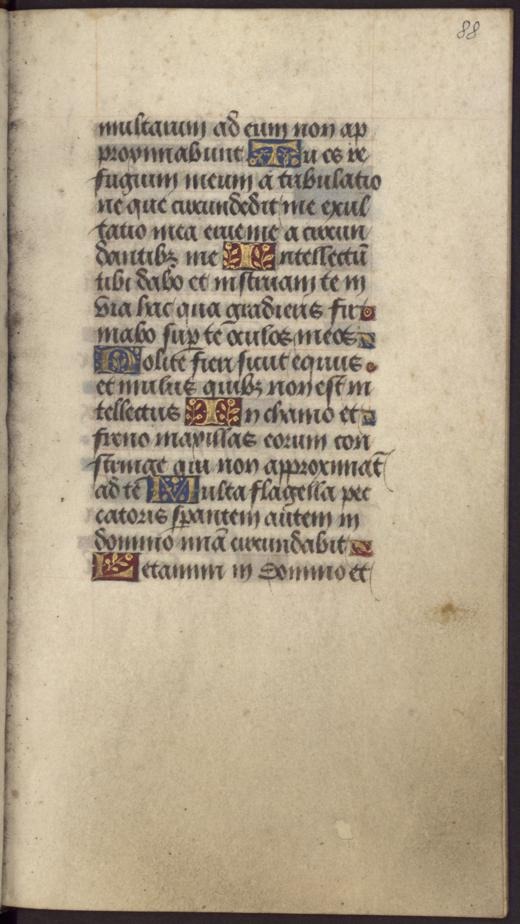 88
multarum ad eum non ap
proximabunt Tu es re
fugium meum a tribulatio
ne que circundedit me exul
tatio mea erue me a circun
dantibꝫ me Intellectū
tibi dabo et instruam te in
via hac qua gradieris fir
mabo sup te oculos meos
Nolite fieri sicut equus
et mulus quibꝫ non est in
tellectus In chamo et
freno maxillas eorum con
stringe qui non approximāt
ad te Multa flagella pec
catoris sperantem autem in
domino mīa circundabit
Letamini in domino et